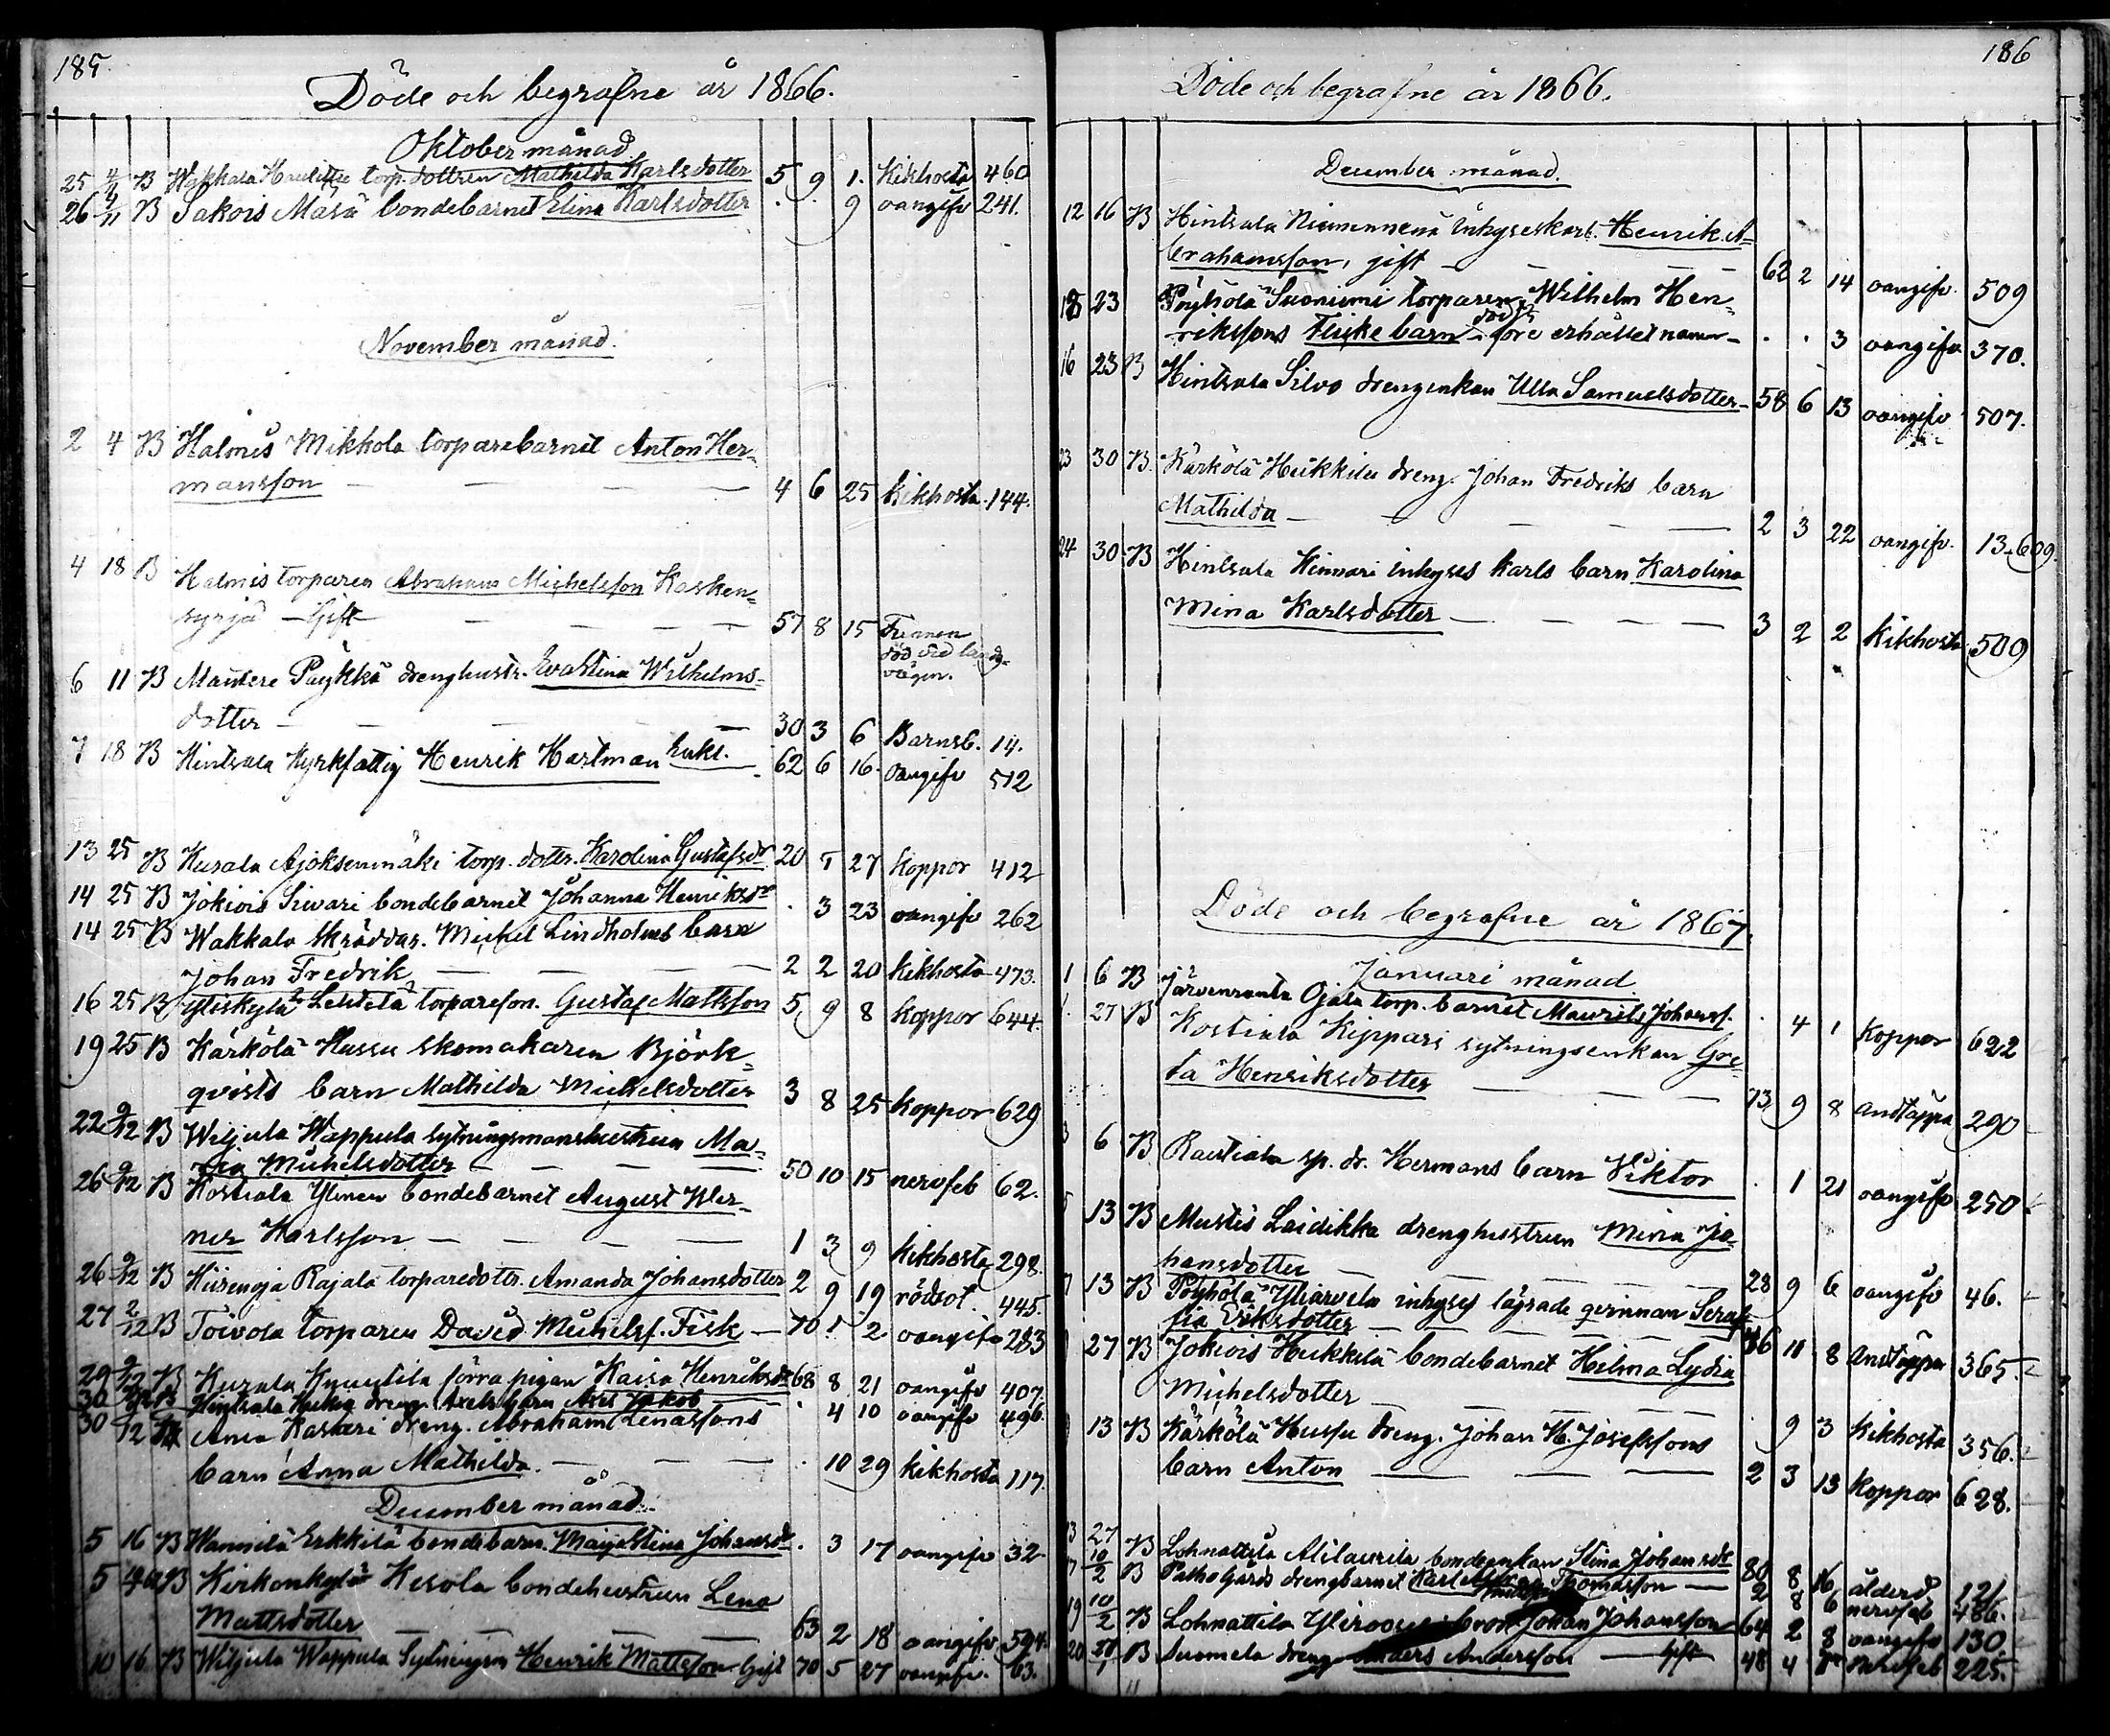 185.
Döde och begrafne år 1866.
Oktober månad
25 4/11 B Wakkala torp. dottren Mathilda Karlsdotter 5 9 1. Kikhosta 460
26 4/11 B Sakois Masä bondebarnet Elina Karlsdotter . . 9 oangifv 241.
November månad.
2 4 B Halmis Mikkola torparebarnet Anton Her-
mansson — — — 4 6 25 Kikhosta 144.
4 18 B Halmis torparen Abraham Michelsson Kasken-
syrjä — Gift — — — 57 8 15 Funnen
död vid lands-
vägen.
6 11 B Mantere Päykkä drenghustr. Eva Stina Wilhelms-
dotter — — — 30 3 6 Barnsb. 14.
7 18 B Hintsala Kyrkfattig Henrik Hartman Enkl. 62 6 16 oangifv 512
13 25 B Kurala Ajoksenmäki torp. dottr. Karolina Gustafsdr 20 5 27 Koppor 412
14 25 B Jokiois Siwari bondebarnet Johanna Henriksdr . 3 23 oangifv 262
14 25 B Wakkala Skräddar. Michel Lindholms barn
Johan Fredrik — — — 2 2 20 Kikhosta 473.
16 25 B Yliskylä Lehtelä torpareson. Gustaf Mattsson 5 9 8 Koppor 644.
19 25 B Kärkölä Hassu skomakaren Björk-
qvists barn Mathilda Michelsdotter 3 8 25 Koppor 629
22 2/12 B Wiljula Wappula sytningsmanshustrun Ma-
ria Michelsdotter — — — 50 10 15 nervfeb 62.
26 2/12 B Kostiala Ylinen bondebarnet August Wer-
ner Karlsson — — — 1 3 9 Kikhosta 298.
26 2/12 B Hiirenoja Rajala torparedottr. Amanda Johansdotter 2 9 19 rödsot. 445.
27 2/12 B Toivola torparen David Michelss. Fisk — 70 1 2 oangifv 283
29 2/12 B Kurala Knuutila förra pigan Kaisa Henriksdr 68 8 21 oangifv 407.
30 2/12 B Hintsala dreng. Axels barn Axel Jakob . 4 10 oangifv 496.
30 2/12 B Ania Kaskeri dreng. Abraham Lenassons
barn Anna Mathilda. — — — . 10 29 Kikhosta 117.
December månad.
5 16 B Wannilä Erkkilä bondebarn. Maija Stina Johansdr. . 3 17 oangifv 32
5 16 B Kirkonkylä Kesola bondehustrun Lena
Mattsdotter — — — 63 2 18 oangifv. 594.
10 16 B Wiljula Wappula Sytningsm Henrik Mattsson Gift 70 5 27 oangifv. 63.
186
Döde och begrafne år 1866.
December månad.
12 16 B Hintsala Nieminnenä inhyseskarl. Henrik A-
brahamsson, gift — — — 62 2 14 oangifv. 509
18 23 Pöyhölä Suoniemi torparen Wilhelm Hen-
rikssons Flicke barn död före erhållet namn — . . 3 oangifv 370.
16 23 B Hintsala Silvo drengenkan Ulla Samuelsdotter — 58 6 13 oangifv 507.
23 30 B. Kärkölä Heikkilä dreng. Johan Fredriks barn
Mathilda — — — 2 3 22 oangifv. 13. 609.
24 30 B Hintsala Kinnari inhyses karls barn Karolina
Mina Karlsdotter — — — 3 2 2 Kikhosta 509
Döde och begrafne år 1867.
Januari månad.
1 6 B Järvenranta Ojala torp. barnet Maurits Johanss. . 4 1 Koppor 622
27 B Kostiala Kippari sytningsenkan Gre-
ta Henriksdotter — — — 73 9 8 Andtäppa 290
3 6 B Rautiala sp. dr. Hermans barn Viktor . 1 21 oangifv 250
13 B Mustis Laidikka drenghustrun Mina Jo-
hansdotter — — — 28 9 6 oangifv 46.
7 13 B Pöyhölä Yliarvela inhyses lägrade qvinnan Sera-
fia Eriksdotter — — — 46 11 8 Andtäppa 365
27 B Jokiois Heikkilä bondebarnet Hilma Lydia
Michelsdotter — — — . 9 3 Kikhosta 356.
13 B Kärkölä Hussu dreng. Johan H. Josefssons
barn Anton — — — 2 3 13 Koppor 628.
13 27 B Lohnattila Alilaurila bondeenkan Stina Johansdr 80 8 16 ålderd 121.
17 10/2 B drengbarnet Karl Thomasson — 2 8 6 nervfeb 486.
19 10/2 B Lohnattila Johan Johansson 64 2 8 oangifv 130
20 B Suomela dreng Anders Andersson — Gift 48 4 nervfeb 225.